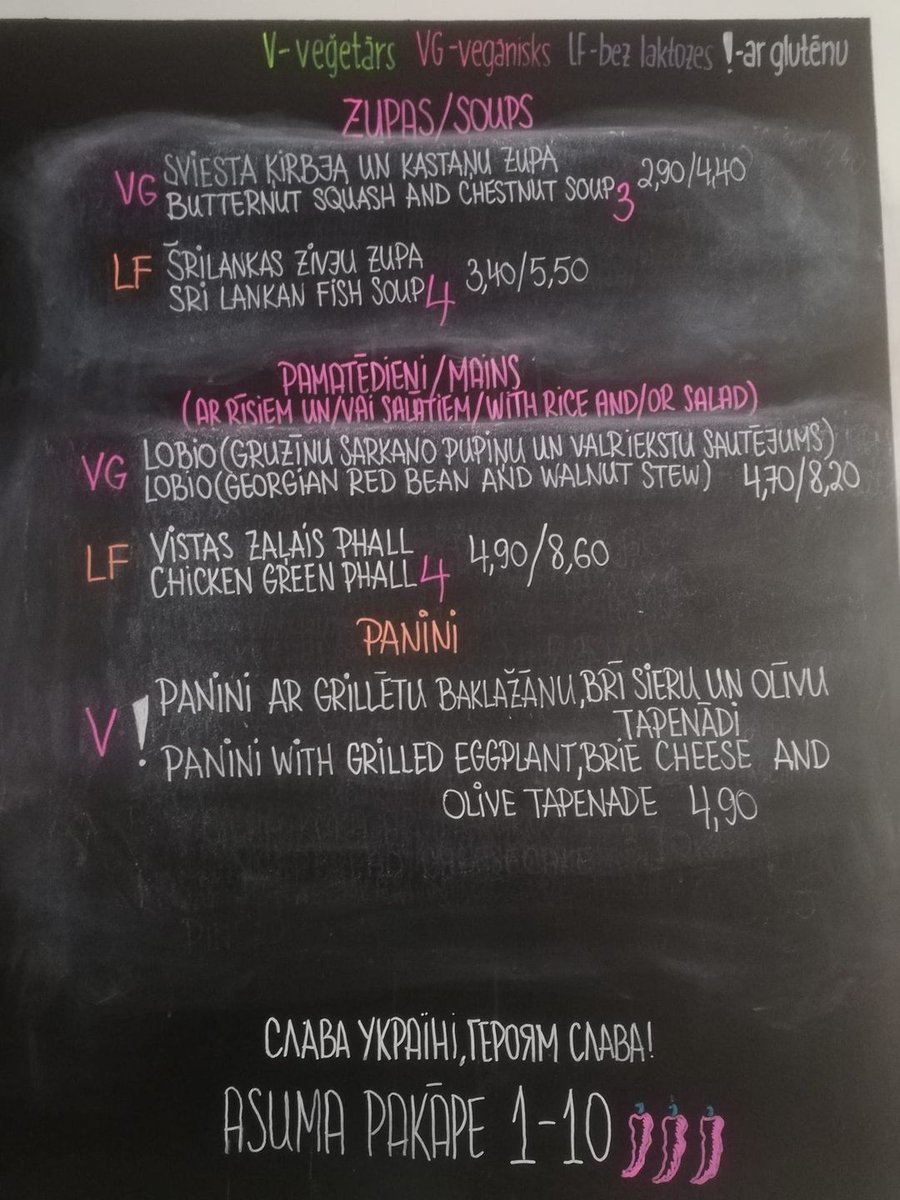 V-veģetārs VG-vegānisks LF-bez laktozes !-ar glutēnu
ZUPAS/SOUPS
VG SVIESTA ĶIRBJA UN KASTAŅU ZUPA
BUTTERNUT SQUASH AND CHESTNUT SOUP 3 2,90/4,40
LF ŠRILANKAS ZIVJU ZUPA
SRI LANKAN FISH SOUP 4 3,40/5,50
PAMATĒDIENI/MAINS
(AR RĪSIEM UN/VAI SALĀTIEM/WITH RICE AND/OR SALAD)
VG LOBIO(GRUZĪNU SARKANO PUPIŅU UN VALRIEKSTU SAUTĒJUMS)
LOBIO(GEORGIAN RED BEAN AND WALNUT STEW) 4,70/8,20
LF VISTAS ZAĻAIS PHALL
CHICKEN GREEN PHALL 4 4,90/8,60
PANINI
V! PANINI AR GRILLĒTU BAKLAŽĀNU,BRĪ SIERU UN OLĪVU
TAPENĀDI
PANINI WITH GRILLED EGGPLANT,BRIE CHEESE AND
OLIVE TAPENADE 4,90
СЛАВА УКРАЇНІ,ГЕРОЯМ СЛАВА!
ASUMA PAKĀPE 1-10